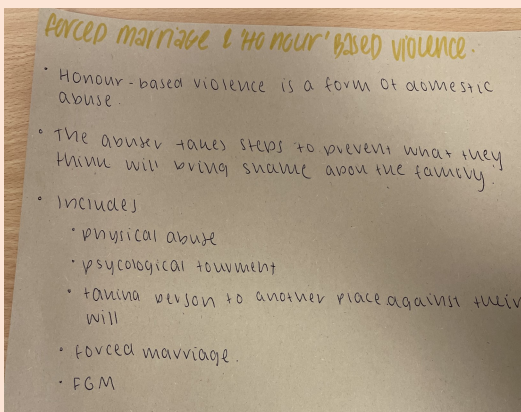 forced marriage & 'HONOUR' BASED VIOLENCE.
• Honour-based violence is a form of domestic
abuse.
• The abuser takes steps to prevent what they
think will bring shame apon the family.
• Includes
• physical abuse
• psycological tourment
• taking person to another place against their
will
• forced marriage.
• FGM